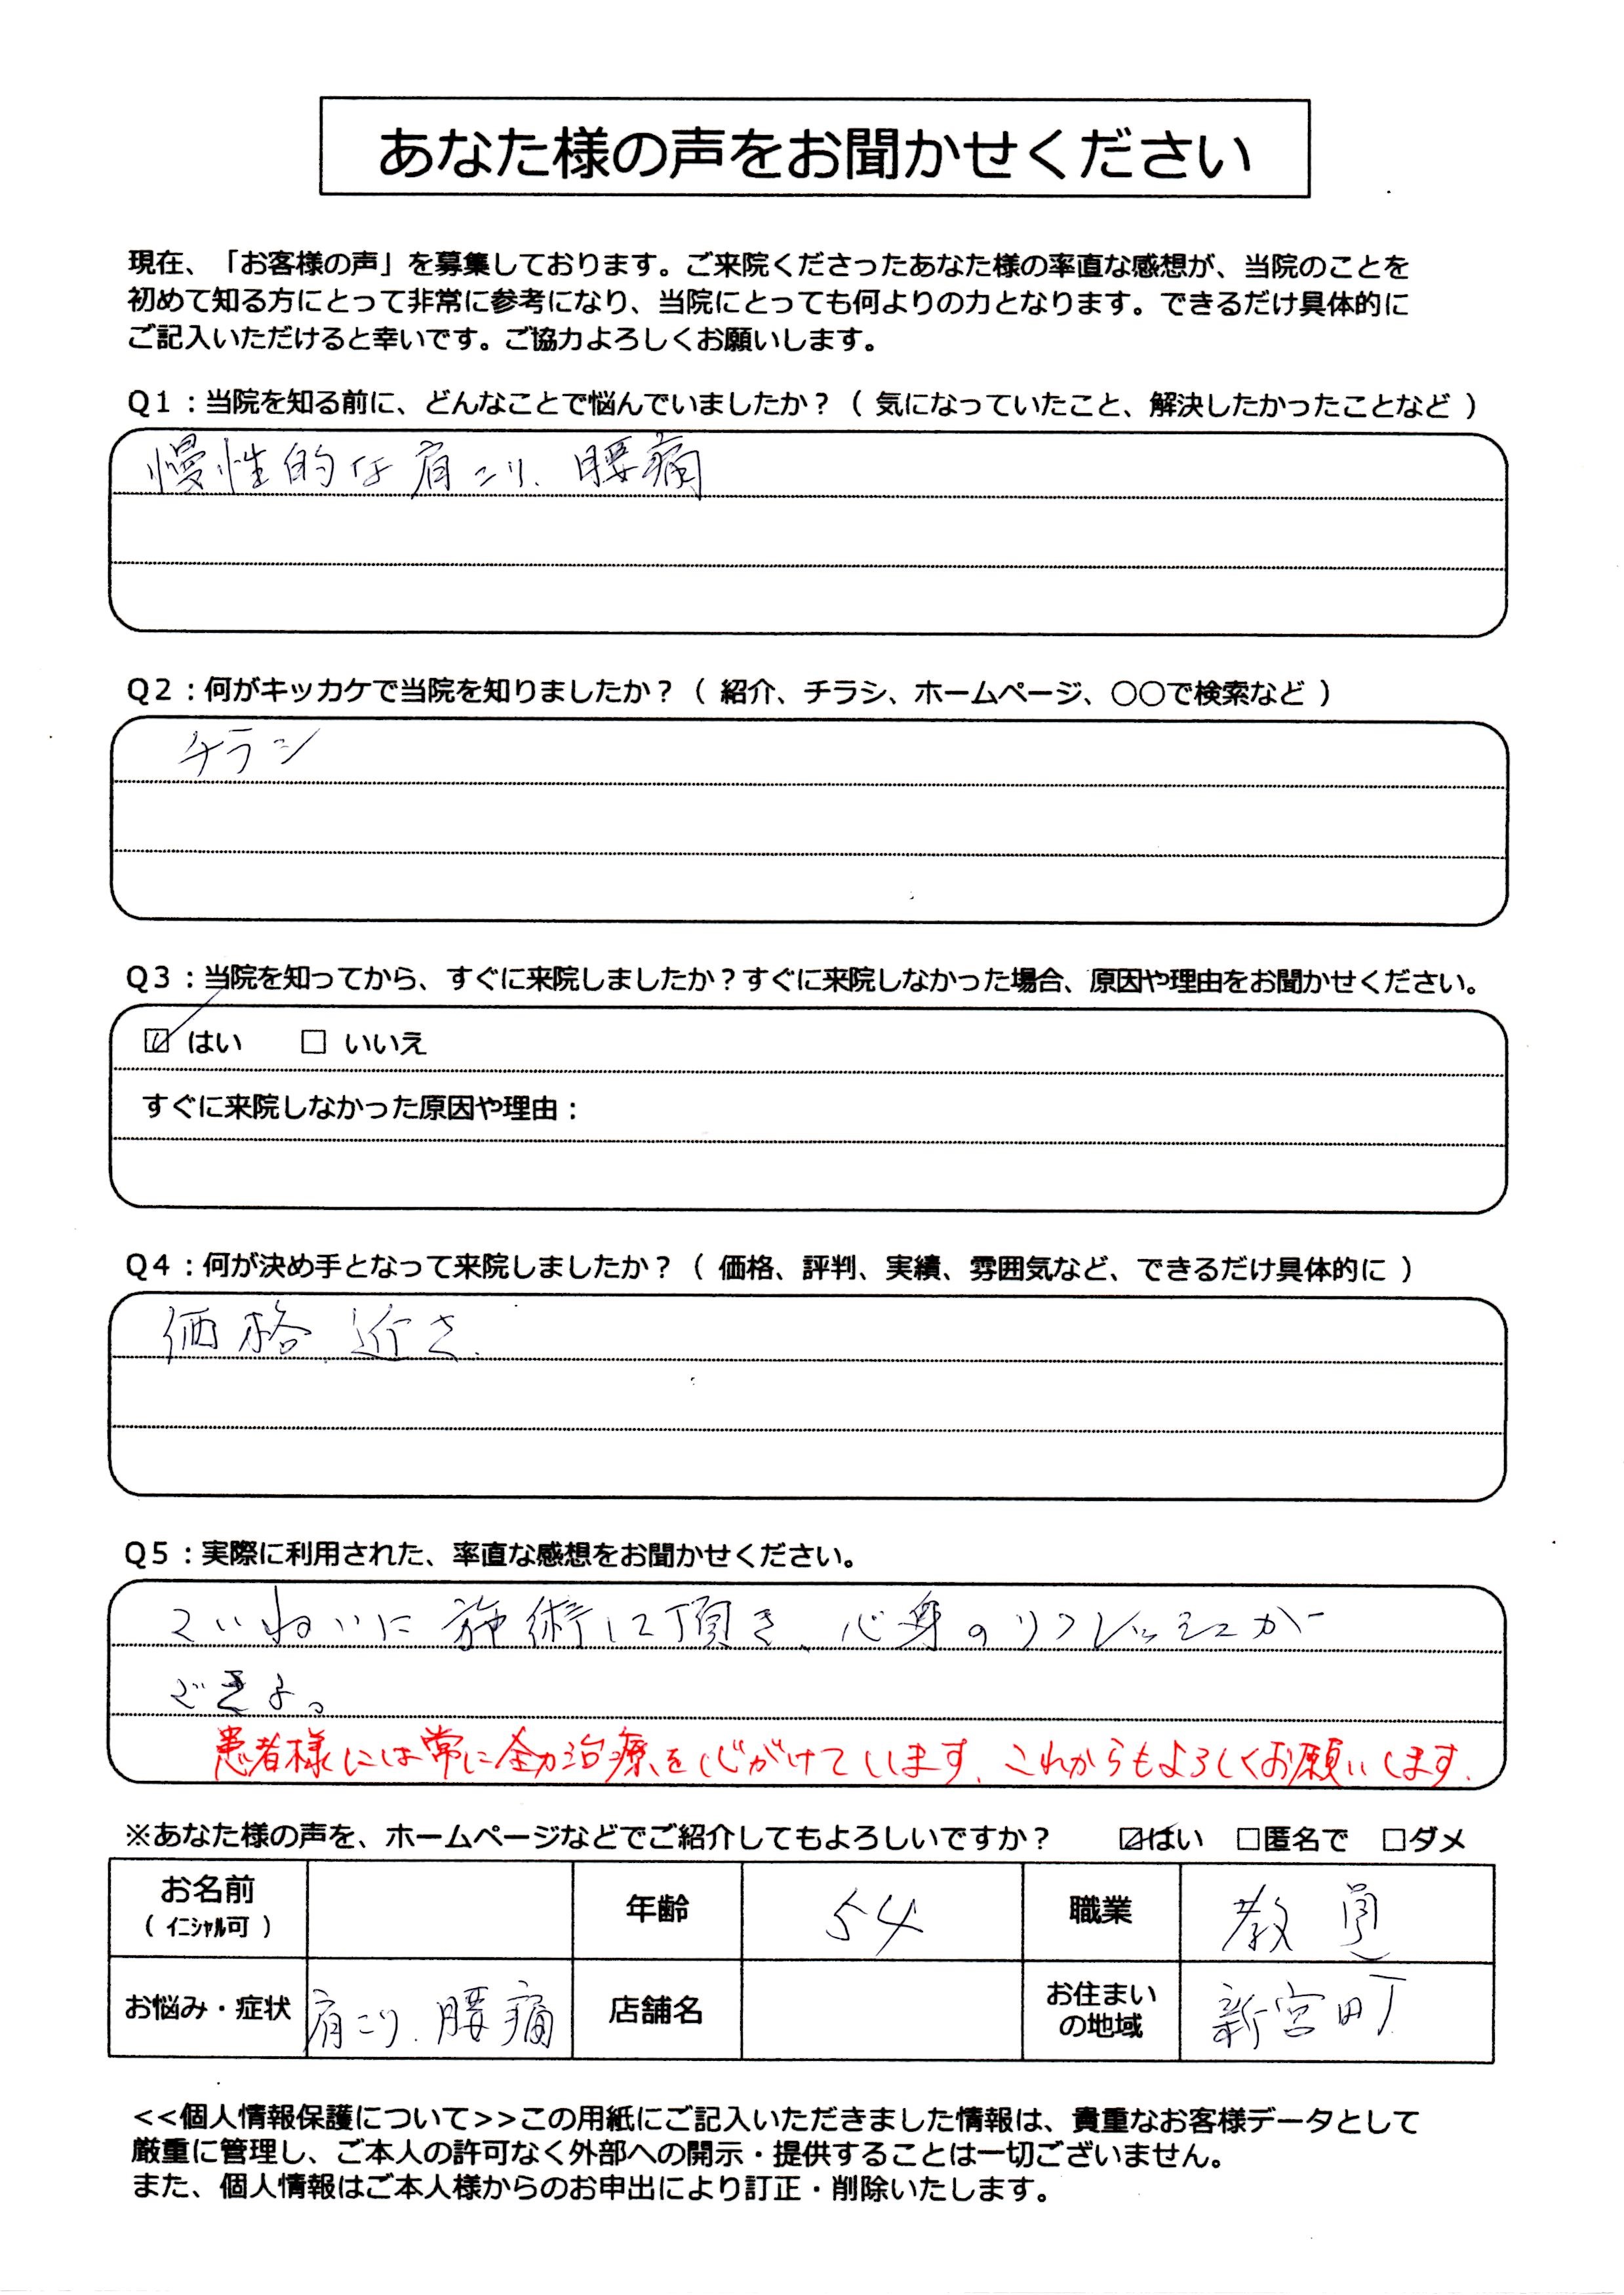 あなた様の声をお聞かせください
現在、「お客様の声」を募集しております。ご来院くださったあなた様の率直な感想が、当院のことを
初めて知る方にとって非常に参考になり、当院にとっても何よりの力となります。できるだけ具体的に
ご記入いただけると幸いです。ご協力よろしくお願いします。
Q1：当院を知る前に、どんなことで悩んでいましたか？（ 気になっていたこと、解決したかったことなど ）
慢性的な肩こり、腰痛
Q2：何がキッカケで当院を知りましたか？（ 紹介、チラシ、ホームページ、○○で検索など ）
チラシ
Q3：当院を知ってから、すぐに来院しましたか？すぐに来院しなかった場合、原因や理由をお聞かせください。
☑ はい　□ いいえ
すぐに来院しなかった原因や理由：
Q4：何が決め手となって来院しましたか？（ 価格、評判、実績、雰囲気など、できるだけ具体的に ）
価格、近さ、
Q5：実際に利用された、率直な感想をお聞かせください。
ていねいに施術して頂き、心身のリフレッシュが
できる。
患者様には常に全力治療を心がけています、これからもよろしくお願いします、
※あなた様の声を、ホームページなどでご紹介してもよろしいですか？　☑はい　□匿名で　□ダメ
お名前　年齢　54　職業　教員
（ ｲﾆｼｬﾙ可 ）
お悩み・症状　肩こり、腰痛　店舗名　お住まい　新宮町
の地域
<<個人情報保護について>>この用紙にご記入いただきました情報は、貴重なお客様データとして
厳重に管理し、ご本人の許可なく外部への開示・提供することは一切ございません。
また、個人情報はご本人様からのお申出により訂正・削除いたします。